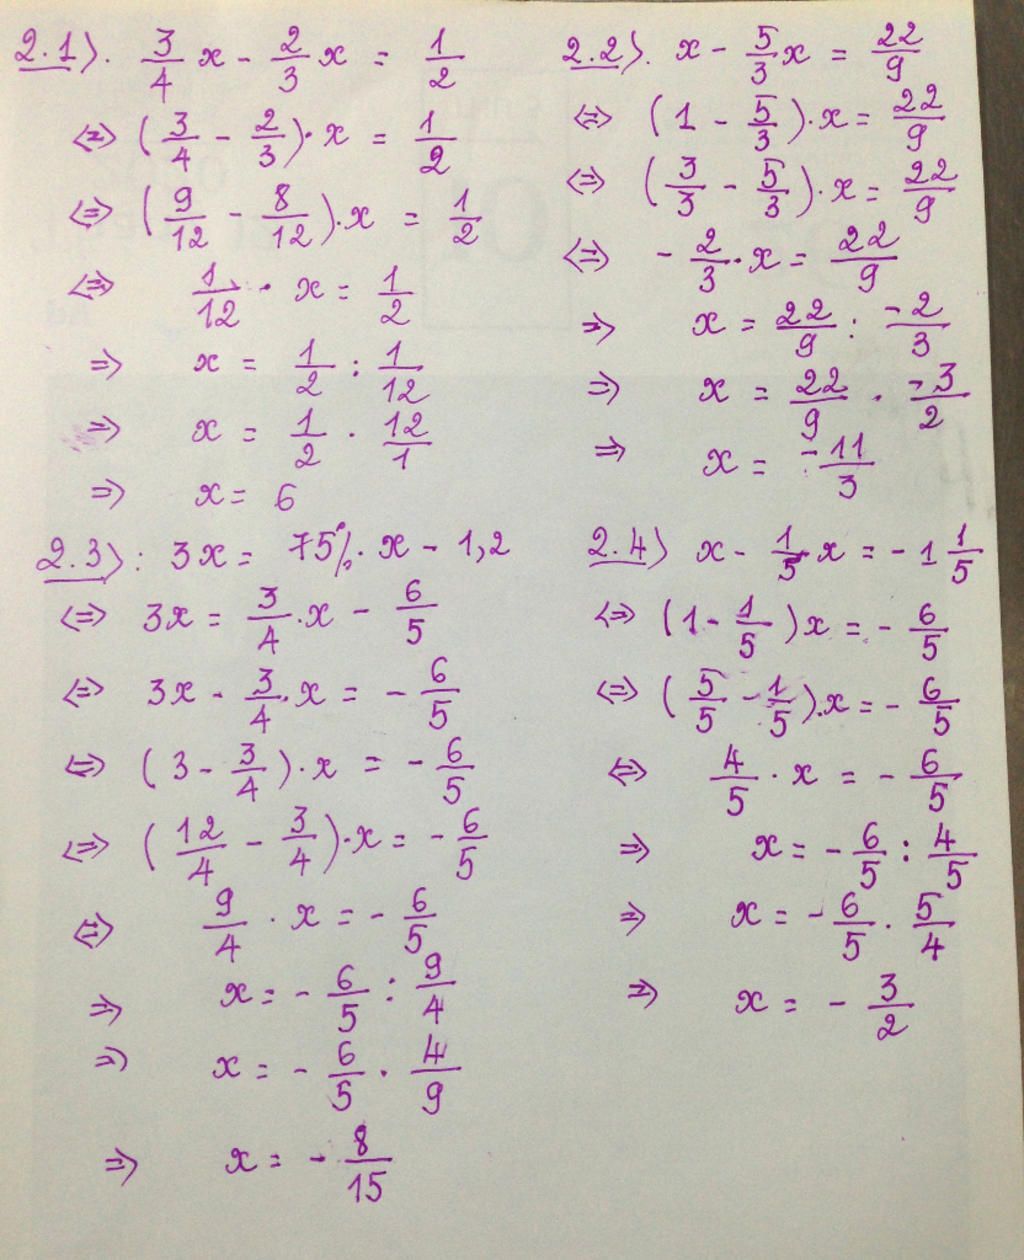 2.1). 3/4 x - 2/3 x = 1/2
⇔ (3/4 - 2/3)·x = 1/2
⇔ (9/12 - 8/12)·x = 1/2
⇔ 1/12 · x = 1/2
⇒ x = 1/2 : 1/12
⇒ x = 1/2 · 12/1
⇒ x = 6
2.2). x - 5/3 x = 22/9
⇔ (1 - 5/3)·x = 22/9
⇔ (3/3 - 5/3)·x = 22/9
⇔ - 2/3·x = 22/9
⇒ x = 22/9 : -2/3
⇒ x = 22/9 · -3/2
⇒ x = -11/3
2.3): 3x = 75%·x - 1,2
⇔ 3x = 3/4·x - 6/5
⇔ 3x - 3/4·x = - 6/5
⇔ (3 - 3/4)·x = - 6/5
⇔ (12/4 - 3/4)·x = - 6/5
⇔ 9/4 · x = - 6/5
⇒ x = - 6/5 : 9/4
⇒ x = - 6/5 · 4/9
⇒ x = - 8/15
2.4) x - 1/5 x = - 1 1/5
⇔ (1 - 1/5)x = - 6/5
⇔ (5/5 - 1/5)·x = - 6/5
⇔ 4/5 · x = - 6/5
⇒ x = - 6/5 : 4/5
⇒ x = - 6/5 · 5/4
⇒ x = - 3/2